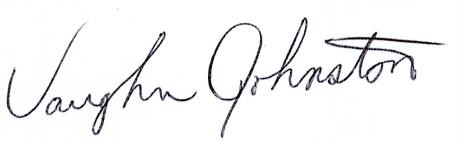 Vaughn Johnston